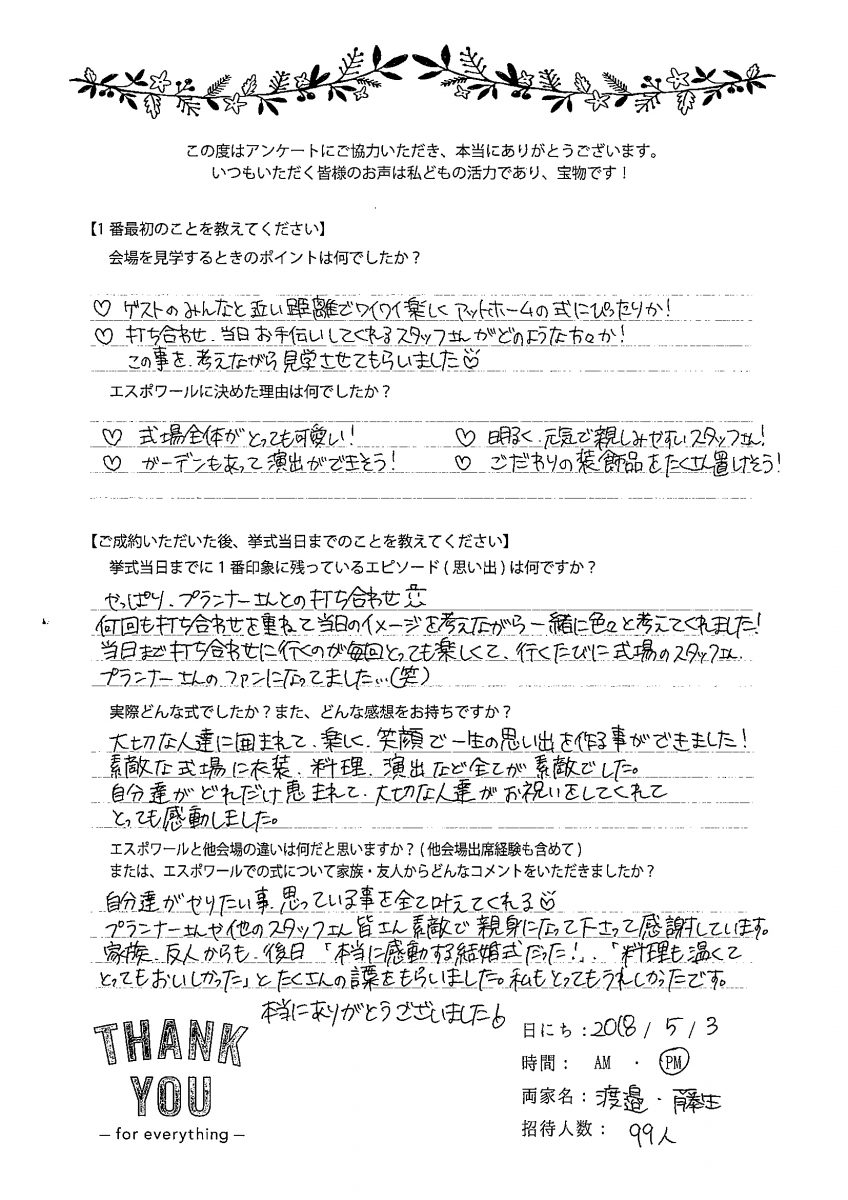 この度はアンケートにご協力いただき、本当にありがとうございます。
いつもいただく皆様のお声は私どもの活力であり、宝物です！
【1番最初のことを教えてください】
会場を見学するときのポイントは何でしたか？
♡ ゲストのみんなと近い距離でワイワイ楽しくアットホームの式にぴったりか！
♡ 打ち合わせ、当日お手伝いしてくれるスタッフさんがどのような方々か！
この事を、考えながら見学させてもらいました
エスポワールに決めた理由は何でしたか？
♡ 式場全体がとっても可愛い！ ♡ 明るく、元気で親しみやすいスタッフさん！
♡ ガーデンもあって演出ができそう！ ♡ こだわりの装飾品をたくさん置けそう！
【ご成約いただいた後、挙式当日までのことを教えてください】
挙式当日までに1番印象に残っているエピソード(思い出)は何ですか？
やっぱり、プランナーさんとの打ち合わせ
何回も打ち合わせを重ねて当日のイメージを考えながら一緒に色々と考えてくれました！
当日まで打ち合わせに行くのが毎回とっても楽しくて、行くたびに式場のスタッフさん、
プランナーさんのファンになってました…(笑)
実際どんな式でしたか？また、どんな感想をお持ちですか？
大切な人達に囲まれて、楽しく、笑顔で一生の思い出を作る事ができました！
素敵な式場に衣装、料理、演出など全てが素敵でした。
自分達がどれだけ恵まれて、大切な人達がお祝いをしてくれて
とっても感動しました。
エスポワールと他会場の違いは何だと思いますか？(他会場出席経験も含めて)
または、エスポワールでの式について家族・友人からどんなコメントをいただきましたか？
自分達がやりたい事、思っている事を全て叶えてくれる
プランナーさんや他のスタッフさん皆さん素敵で親身になって下さって感謝しています。
家族、友人からも、後日「本当に感動する結婚式だった！」、「料理も温くて
とってもおいしかった」とたくさんの言葉をもらいました。私もとってもうれしかったです。
本当にありがとうございました
THANK
YOU
– for everything –
日にち：2018 / 5 / 3
時間： AM ・ PM
両家名：渡邉・藤生
招待人数： 99人